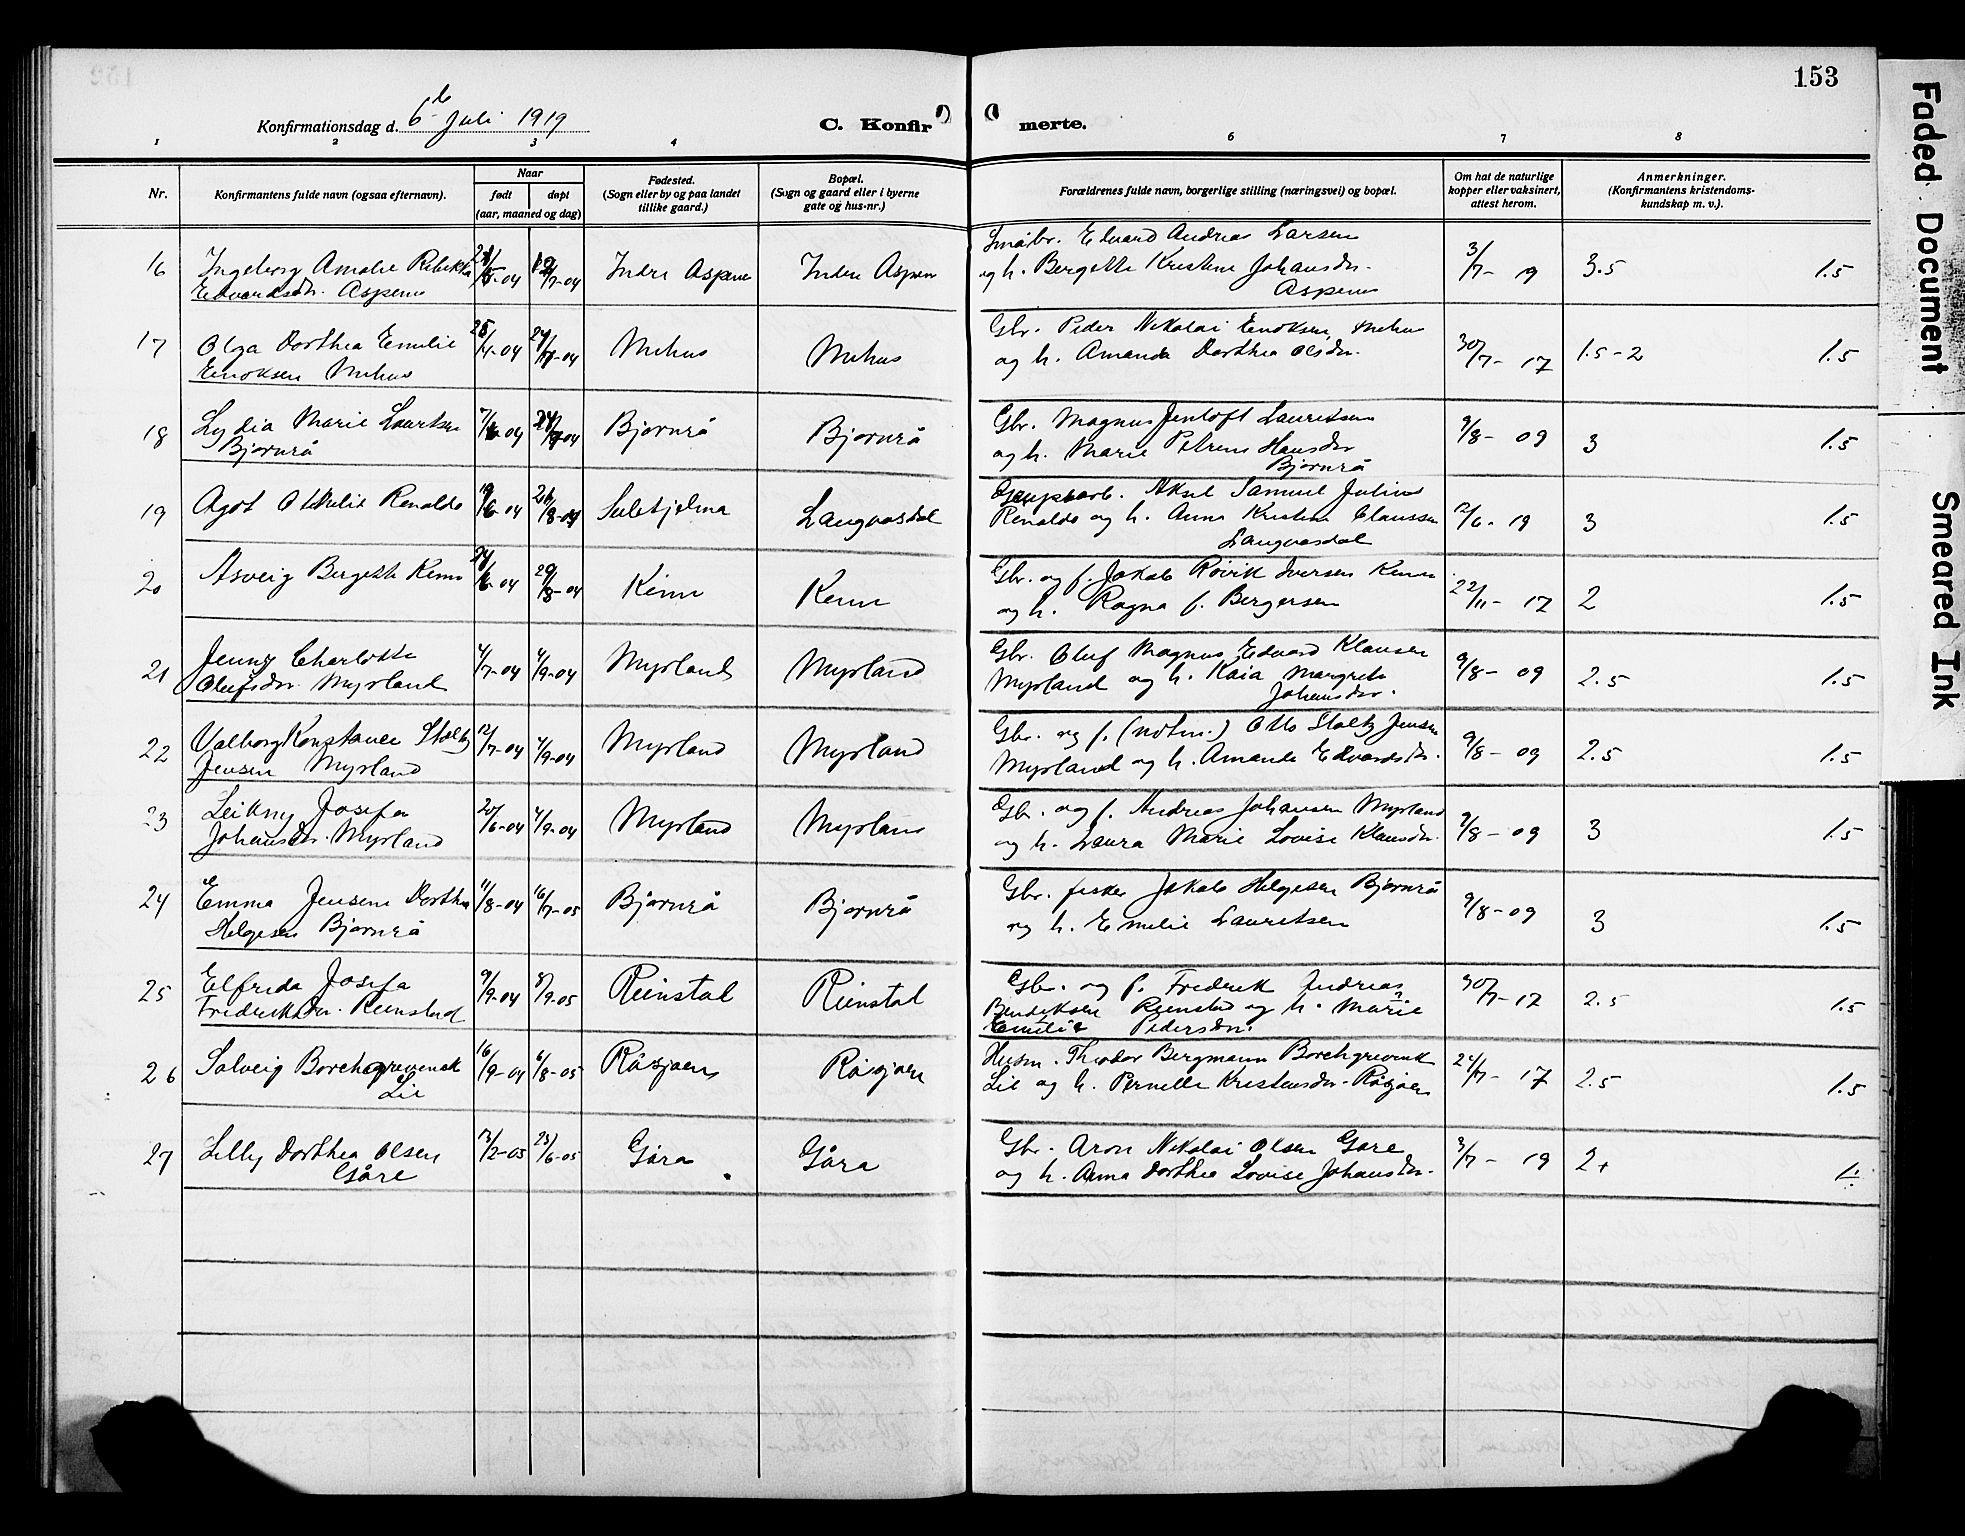 153
Konfirmationsdag d. 6te Juli 1919
C. Konfirmerte.
1 2 3 4 6 7 8
Nr.
Konfirmantens fulde navn (ogsaa efternavn).
Naar
født døpt
(aar, maaned og dag)
Fødested.
(Sogn eller by og paa landet
tillike gaard.)
Bopæl.
(Sogn og gaard eller i byerne
gate og hus-nr.)
Forældrenes fulde navn, borgerlige stilling (næringsvei) og bopæl.
Om hat de naturlige
kopper eller vaksinert,
attest herom.
Anmerkninger.
(Konfirmantens kristendoms-
kundskap m. v.).
16 Ingeborg Amalie Rebekka Indre Aspenes Indre Aspen Småbr. Edvard Andreas Larsen 3/7- 19 3.5 1.5
Edvardsdr. Aspenes og h. Bergette Kristine Johansdr.
Aspenes
17 Olga Dorthea Emelie 25/4-04 24/7-04 Mehus Mehus Gbr. Peder Nikolai Enoksen, Mehus 30/7- 17 1.5-2 1.5
Enoksen Mehus og h. Amanda Dorthea Olsdr.
18 Lydia Marie Lauritsen 7/6-04 24/7-04 Bjørnrå Bjørnrå Gbr. Magnus Jentoft Lauritsen 9/8- 09 3 1.5
Bjørnrå og h. Marie Petrine Hansdr
Bjørnrå
19 Agot Renaldo 19/6-04 21/8-04 Sulitjelma Langvasdal Aksel Samuel Julius 2/6-19 3 1.5
Renaldo og h. Anna Kristine Claussen
Langvasdal
20 Asveig Bergette Kinn 24/6-04 29/8-04 Kinn Kinn Gbr. og f. Jakob Røvik Iversen Kinn 22/11- 17 2 1.5
og h. Ragna f. Bergersen
21 Jenny Charlotte 4/7-04 4/9-04 Myrland Myrland Gbr. Oluf Magnus Edvard Klausen 9/8- 09 2.5 1.5
Olufsdr. Myrland Myrland og h. Kaia Margrete
Johansdr.
22 Valborg Konstance Stoltz 12/7-04 4/9-04 Myrland Myrland Gbr. og f. (notm.) Otto Stoltz Jensen 9/8- 09 2.5 1.5
Jensen Myrland Myrland og h. Amanda Edvardsdr.
23 Leikny Josefa 20/6-04 4/9-04 Myrland Myrland Gbr. og f. Andreas Johansen Myrland 9/8- 09 3 1.5
Johansdr. Myrland og h. Laura Marie Lovise Klausdr.
24 Emma Jensine Dorthea 11/8-04 16/7-05 Bjørnrå Bjørnrå Gbr. fisker Jakob Helgesen Bjørnrå 9/8-09 3 1.5
Helgesen Bjørnrå og h. Emelie Lauritsen
25 Elfrida Josefa 9/9-04 8/9-05 Reinstad Reinstad Gbr. og f. Fredrik Andreas 30/7-17 2.5 1.5
Fredriksdr. Reinstad Bendiksen Reinstad og h. Marie
Emilie Pedersdr.
26 Solveig Borchgrevink 16/9-04 6/8-05 Råsjøen Råsjøen Husm. Theodor Bergmann Borchgrevink 24/7- 17 2.5 1.5
Lie Lie og h. Pernelle Kristensdr. Råsjøen
27 Lilly Dorthea Olsen 13/2-05 23/6-05 Gåra Gåra Gbr. Aron Nikolai Olsen Gåre 3/7- 19 2+ 1.
Gåre og h. Anna Dorthea Lovise Johansdr.
Faded Document
Smeared Ink